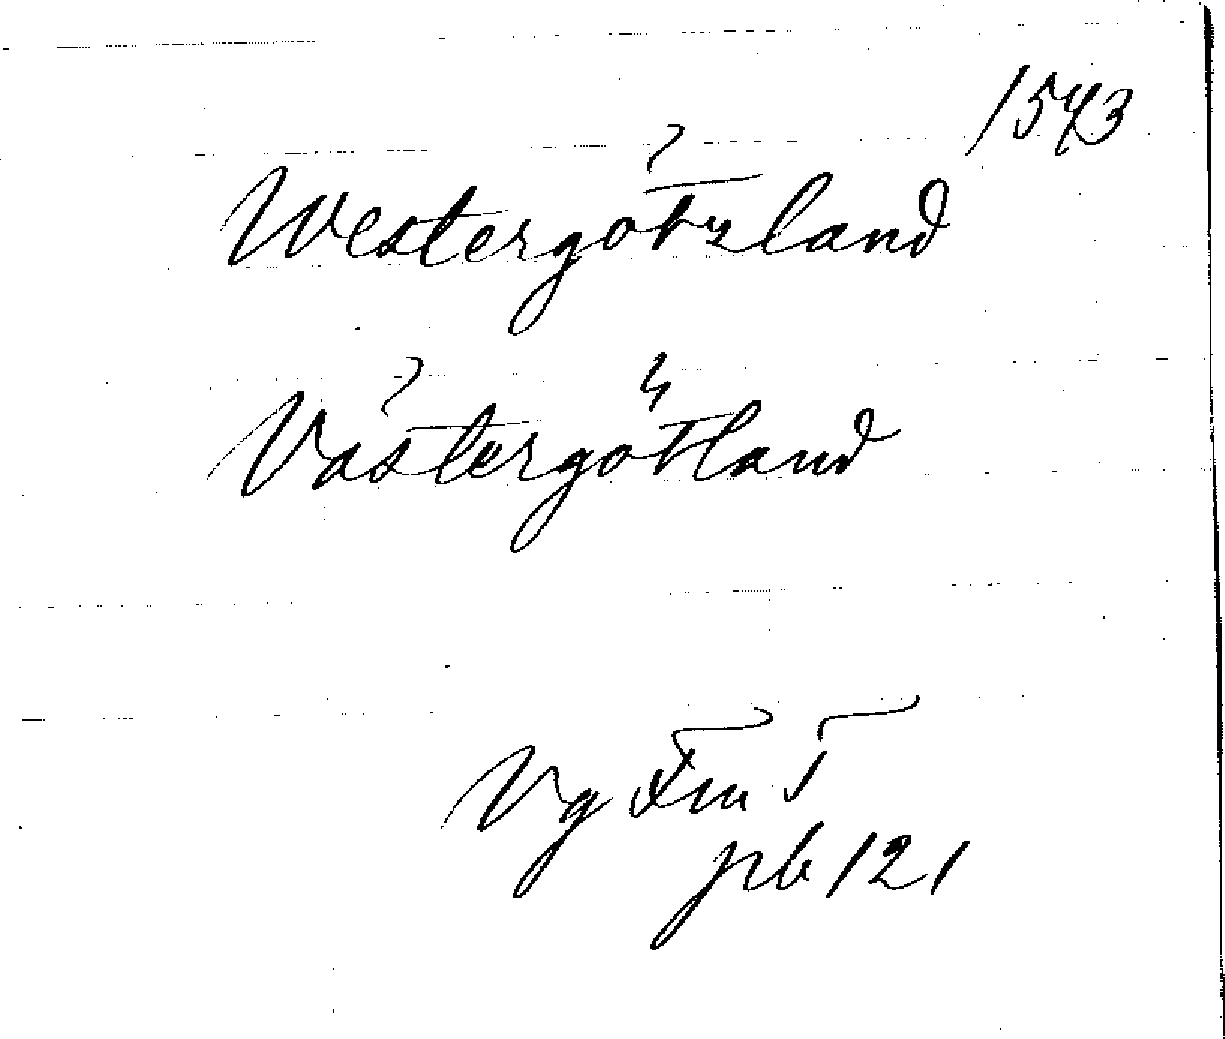 1543
Westergötzland
Västergötland
Vg Fm 5
pb 121